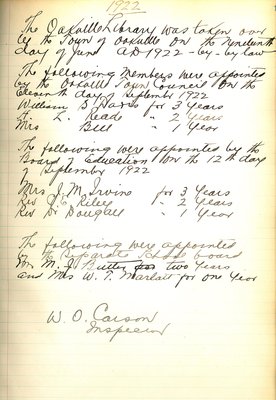 1922
The Oakville Library was taken over
by the Town of Oakville on the Nineteenth
day of June A.D 1922 - by - by law
The following Members were appointed
by the Oakville Town Council on the
Eleventh day of September 1922.
William S Davis for 3 Years
L. Reade " 2 Years
Mrs Bell " 1 Year
The following were appointed by the
Board of Education on the 12th day
of September 1922
Mrs J. M. Irvine for 3 Years
Rev J. E. Riley " 2 Years
Rev D. Dougall " 1 Year
The following were appointed
by the Separate School board
Mr. M. J. Butler for two Years
and Mrs W. T. Marlatt for one Year
W. O. Carson
Inspector